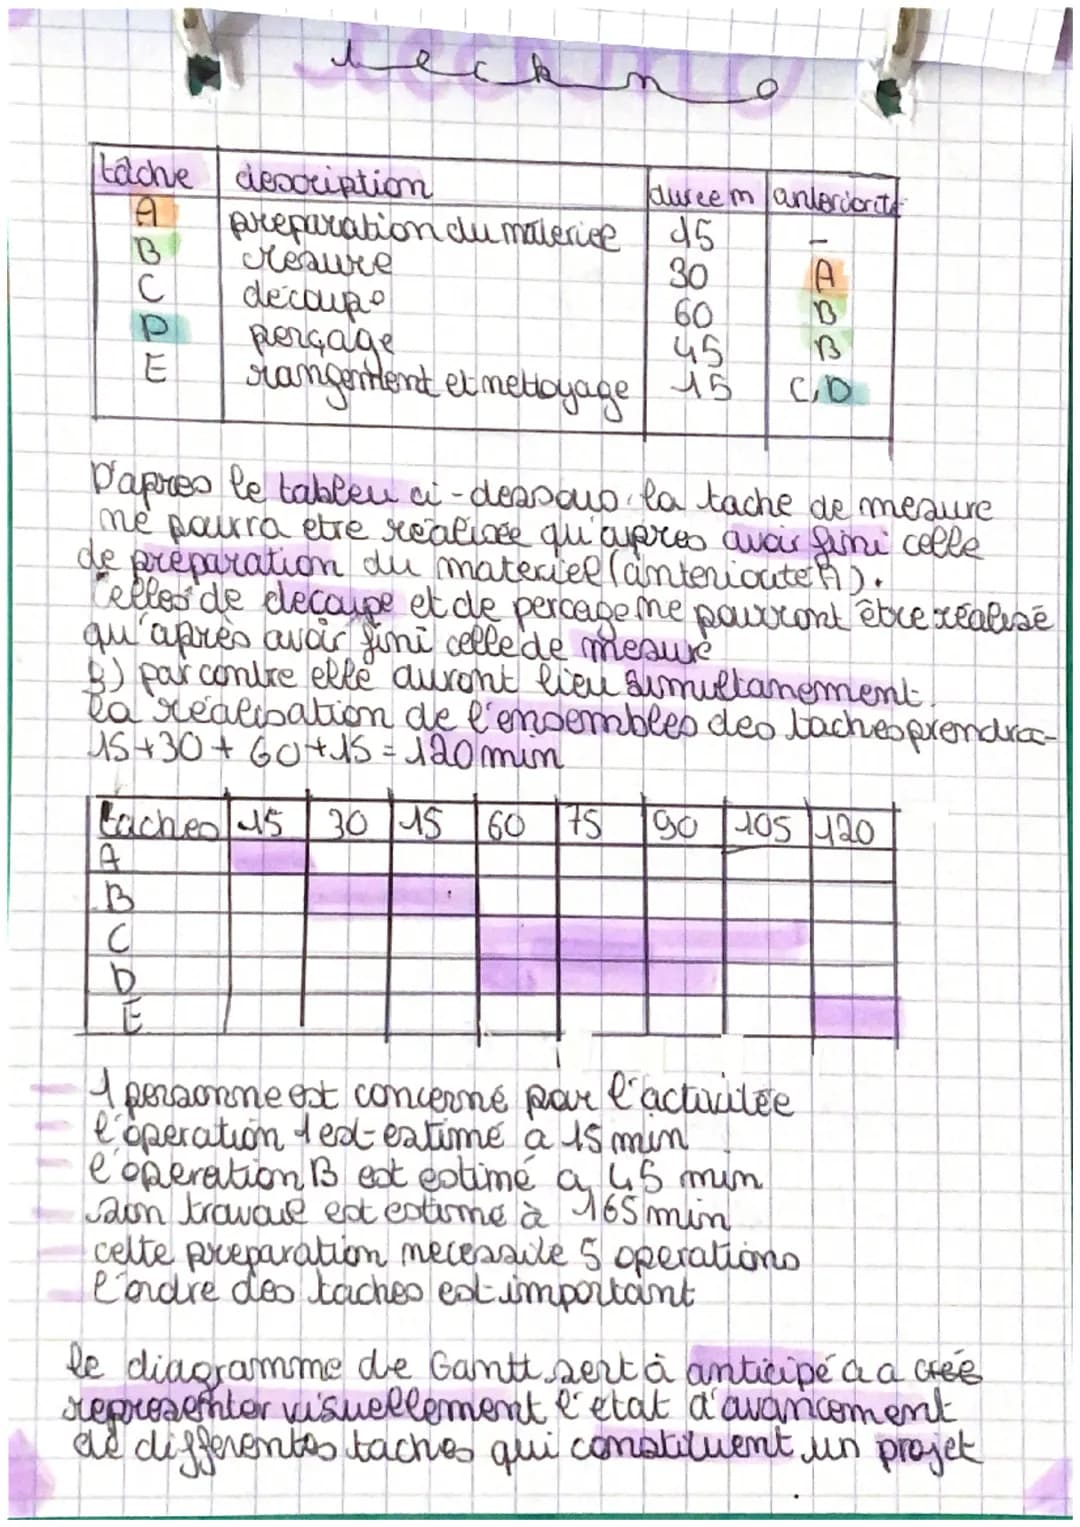 techno
tâche description durée m antériorité
A preparation du materiel 15 -
B mesure 30 A
C découpe 60 B
D perçage 45 B
E rangement et nettoyage 15 C,D
D'apres le tableu ci-dessous la tache de mesure
ne pourra etre realisée qu'apres avoir fini celle
de préparation du materiel (anterioute A).
Celles de decoupe et de percage ne pourront être réalisé
qu'après avoir fini celle de mesure
B) par contre elle auront lieu simultanement.
la réalisation de l'ensembles des taches prendra
15+30+60+15=120min
taches 15 30 15 60 75 90 105 120
A
B
C
D
E
1 personne est concerné par l'activitée
l'operation 1 est estimé a 15 min
l'operation B est estimé a 45 min
son travail est estime à 165 min
cette preparation necessite 5 operations
l'ordre des taches est important
le diagramme de Gantt sert à anticipé a a créé
representer visuellement l'état d'avancement
de differentes taches qui constituent un projet